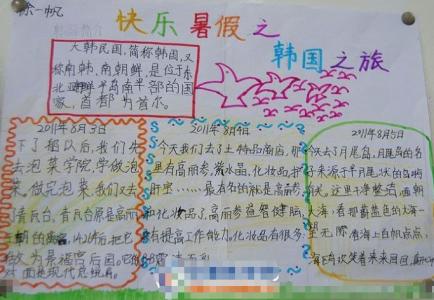 徐一帆
快乐暑假之
韩国之旅
大韩民国,简称韩国,又
称南韩、南朝鲜,是位于东
北亚朝鲜半岛南半部的国
家,首都为首尔。
2011年8月3日
下了船以后,我们先
去泡菜学院,学做泡
菜,做完泡菜,我们又去
青瓦台,青瓦台原是高丽
王朝的离宫,1426年,把它
改为景福宫后园。
对面是现代总统府。
2011年8月4日
今天我们去了土特产商店,那
里有高丽参,紫水晶,化妆品,护
肝宝……最有名的就是高丽参
和化妆品了,高丽参益智健脑,
有提高工作能力,化妆品有很多
2011年8月5日
今天去了月尾岛,月尾岛的名
字来源于半月尾状的岛屿
这里干净整洁,面朝
大海,看那蔚蓝色的大海一
望无际,海上白帆点点,
笑着来来回回